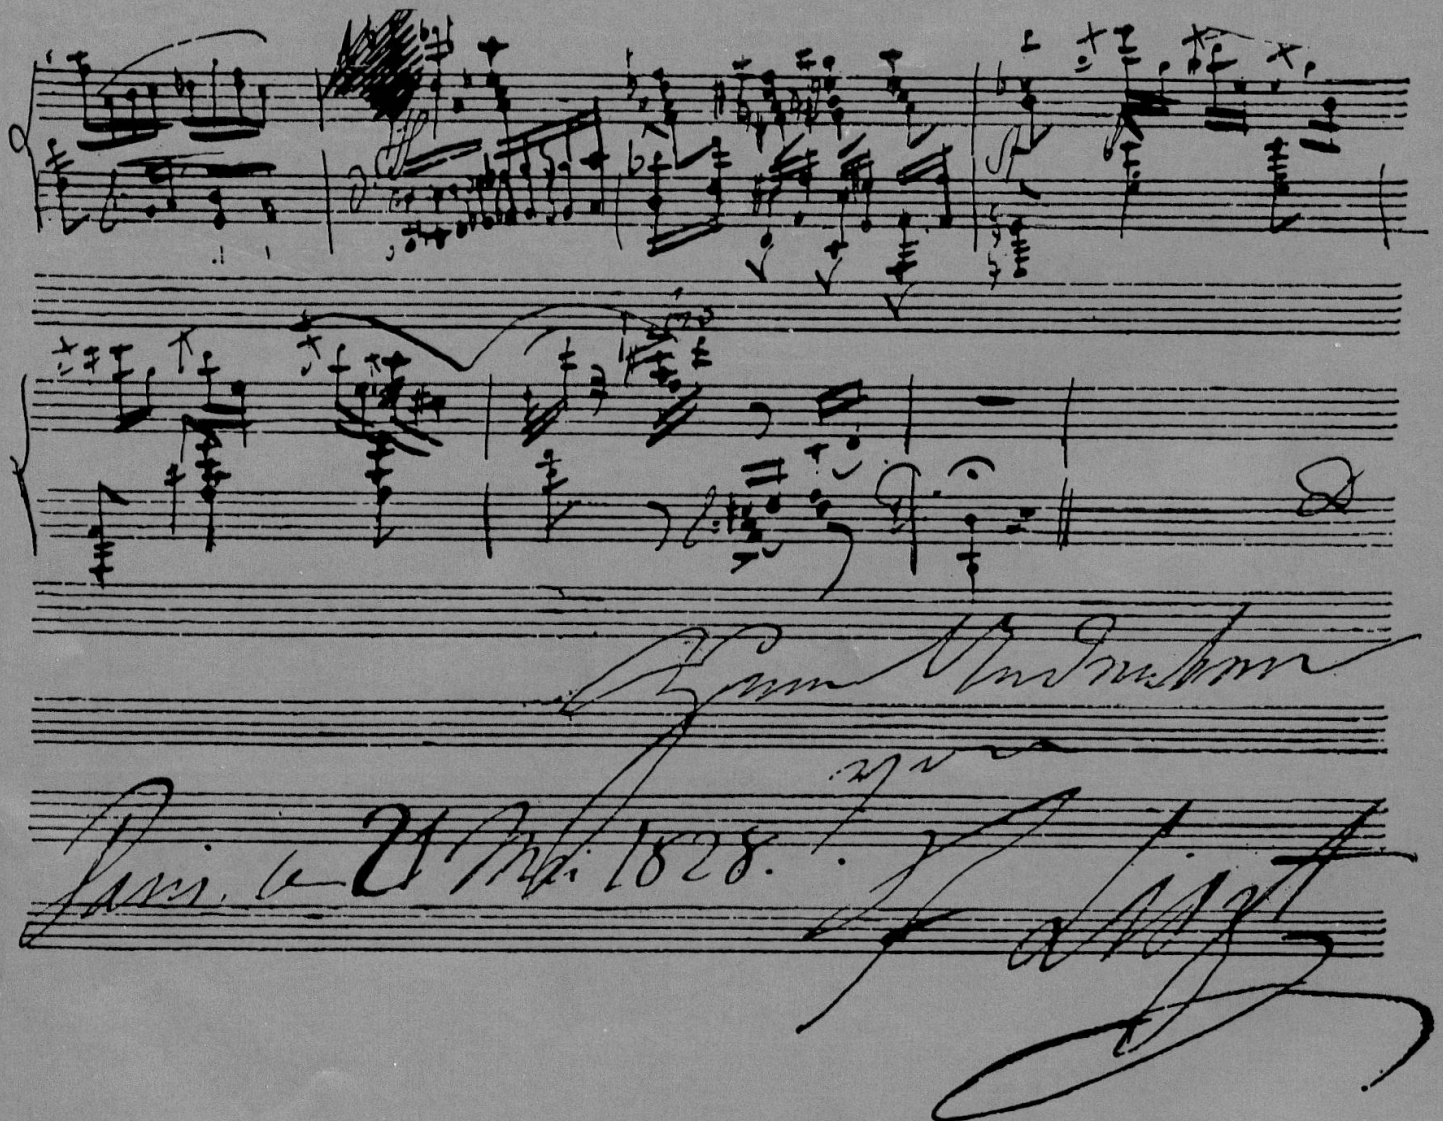 ff sf
Zum Andenken
von
Paris. le 21 Mai 1828. F Liszt